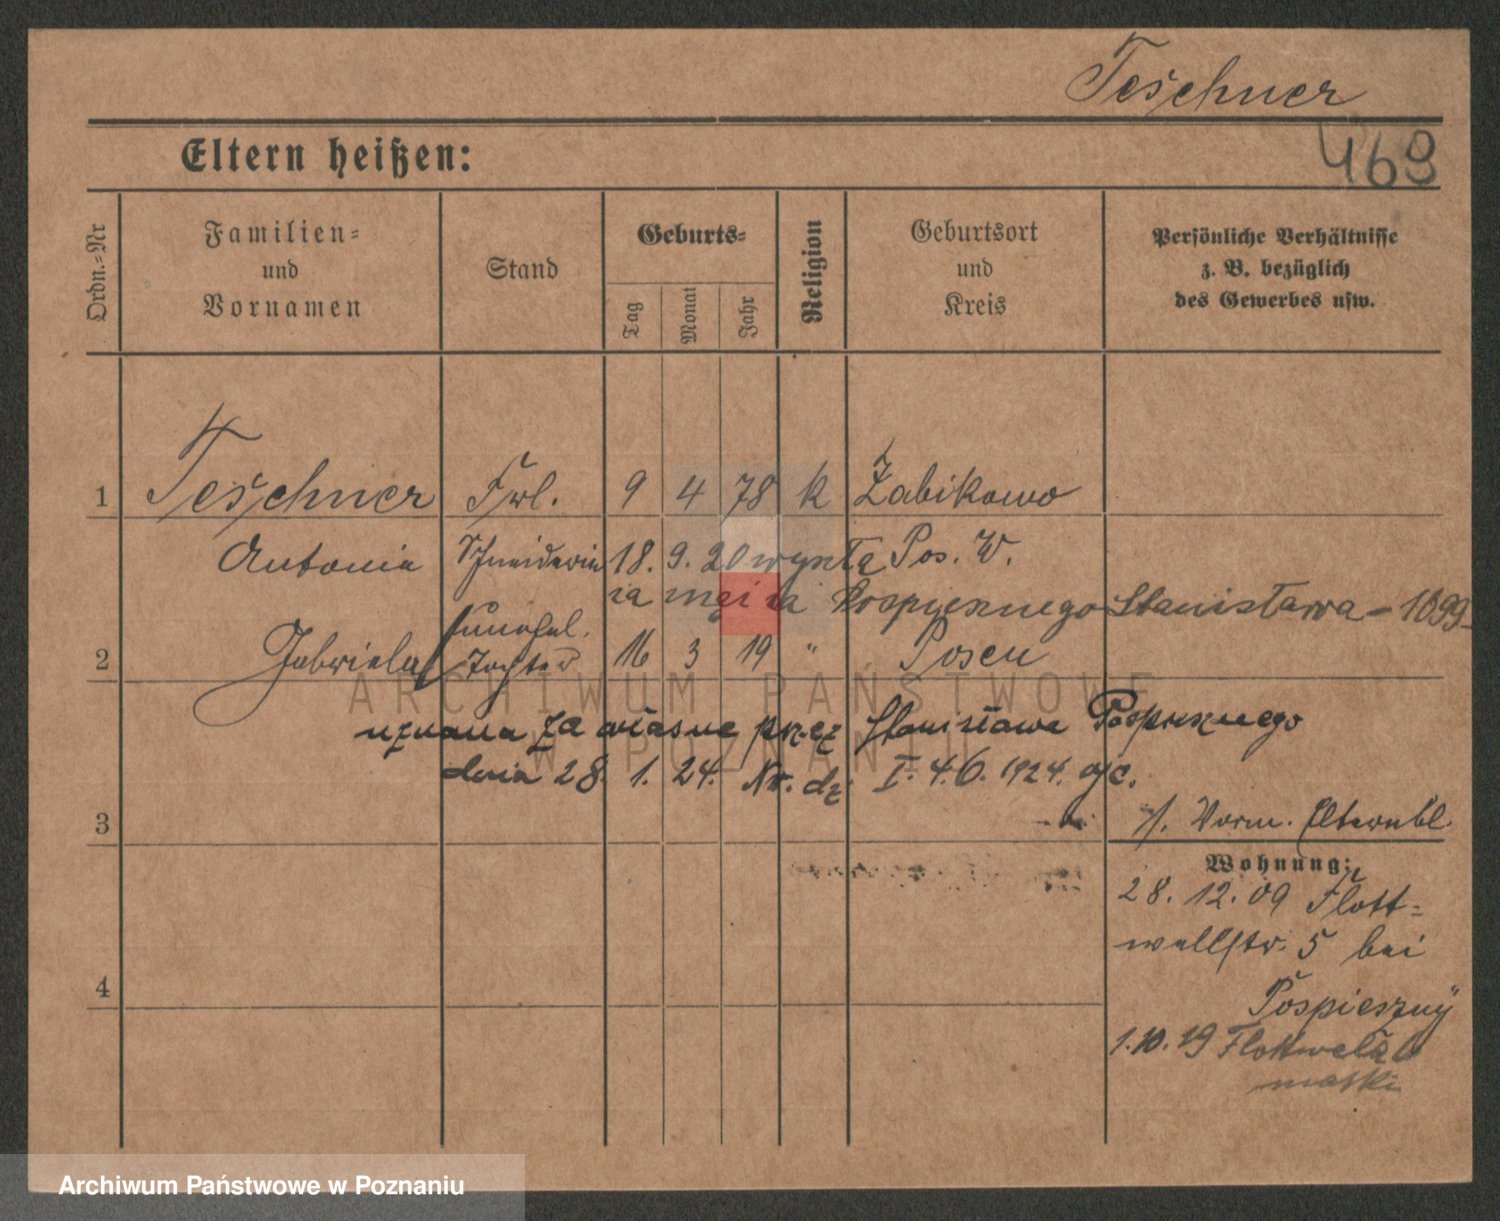 Teschner
469
Eltern heißen:
Ordn.=Nr
Familien=
und
Vornamen
Stand
Geburts=
Tag
Monat
Jahr
Religion
Geburtsort
und
Kreis
Persönliche Verhältnisse
z. B. bezüglich
des Gewerbes usw.
1 Teschner Frl. 9 4 78 k Żabikowo
Antonie Schneiderin 18. 9. 20 wyszła Pos. W.
za męża za Pospiesznego Stanisława - 1899
unehel.
2 Gabriela Tochter 16 3 19 " Posen
uznana za własne przez Stanisława Pospiesznego
dnia 28. 1. 24. Nr. dz. I. 4.6. 1924.
3
Vorm. Elternbl.
Wohnung:
28. 12. 09 Flott=
wellstr. 5 bei
4
Pospieszny
1.10.19 Flottwella
matki
ARCHIWUM PAŃSTWOWE
W POZNANIU
Archiwum Państwowe w Poznaniu